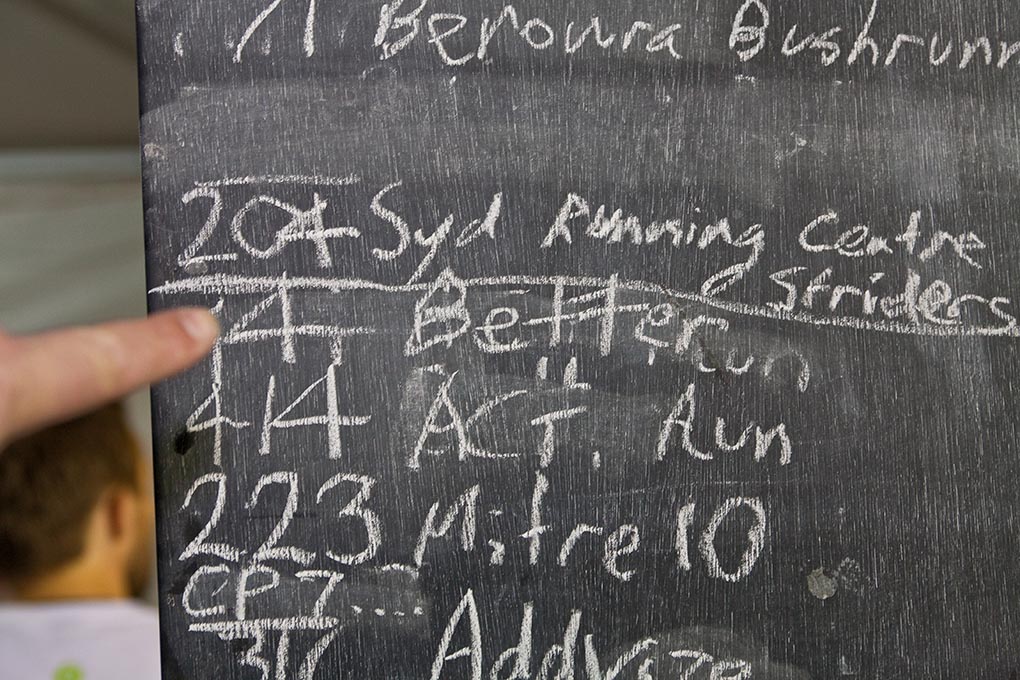 71 Berowra Bushrunn
204 Syd Running Centre
Striders
14 Betterrun
414 ACT. Run
223 Mitre 10
CP7....
317 Addvize